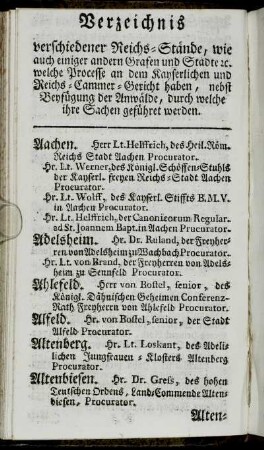 Verzeichnis
verschiedener Reichs-Stände, wie
auch einiger andern Grafen und Städte ꝛc.
welche Processe an dem Kayserlichen und
Reichs-Cammer-Gericht haben, nebst
Beyfügung der Anwälde, durch welche
ihre Sachen geführet werden.
Aachen. Herr Lt. Helffrich, des Heil. Röm.
Reichs Stadt Aachen Procurator.
Hr. Lt. Werner, des Königl. Schöffen-Stuhls
der Kayserl. freyen Reichs-Stadt Aachen
Procurator.
Hr. Lt. Wolff, des Kayserl. Stiffts B.M.V.
in Aachen Procurator.
Hr. Lt. Helffrich, der Canonicorum Regular.
ad St. Joannem Bapt. in Aachen Procurator.
Adelsheim. Hr. Dr. Ruland, der Freyher-
ren von Adelsheim zu Wachbach Procurator.
Hr. Lt. von Brand, der Freyherren von Adels-
heim zu Sennfeld Procurator.
Ahlefeld. Herr von Bostel, senior, des
Königl. Dähnischen Geheimen Conferenz-
Rath Freyherrn von Ahlefeld Procurator.
Alfeld. Hr. von Bostel, senior, der Stadt
Alfeld Procurator.
Altenberg. Hr. Lt. Loskant, des Adeli-
lichen Jungfrauen-Klosters Altenberg
Procurator.
Altenbiesen. Hr. Dr. Greß, des hohen
Teutschen Ordens, Land-Commende Alten-
biesen, Procurator.
Alten-